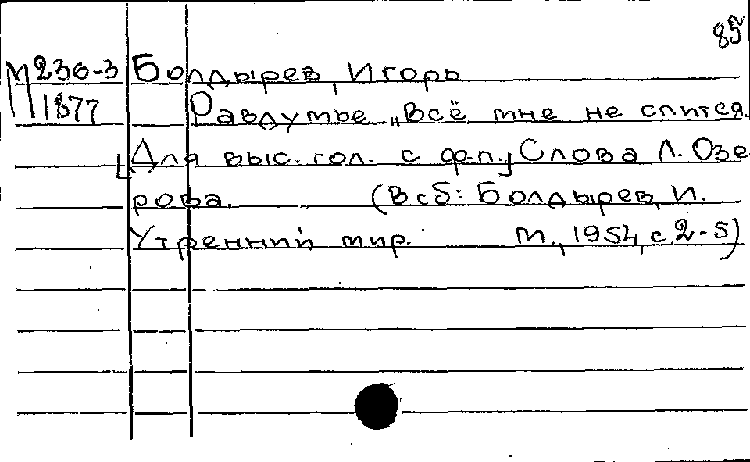 85
М 236-3 Болдырев, Игорь
1877 Раздумье „Всё мне не спится.
[Для выс. гол. с ф.-п.] Слова Л. Озе
рова. (В сб: Болдырев, И.
Утренний мир. М., 1954, с. 2-5)